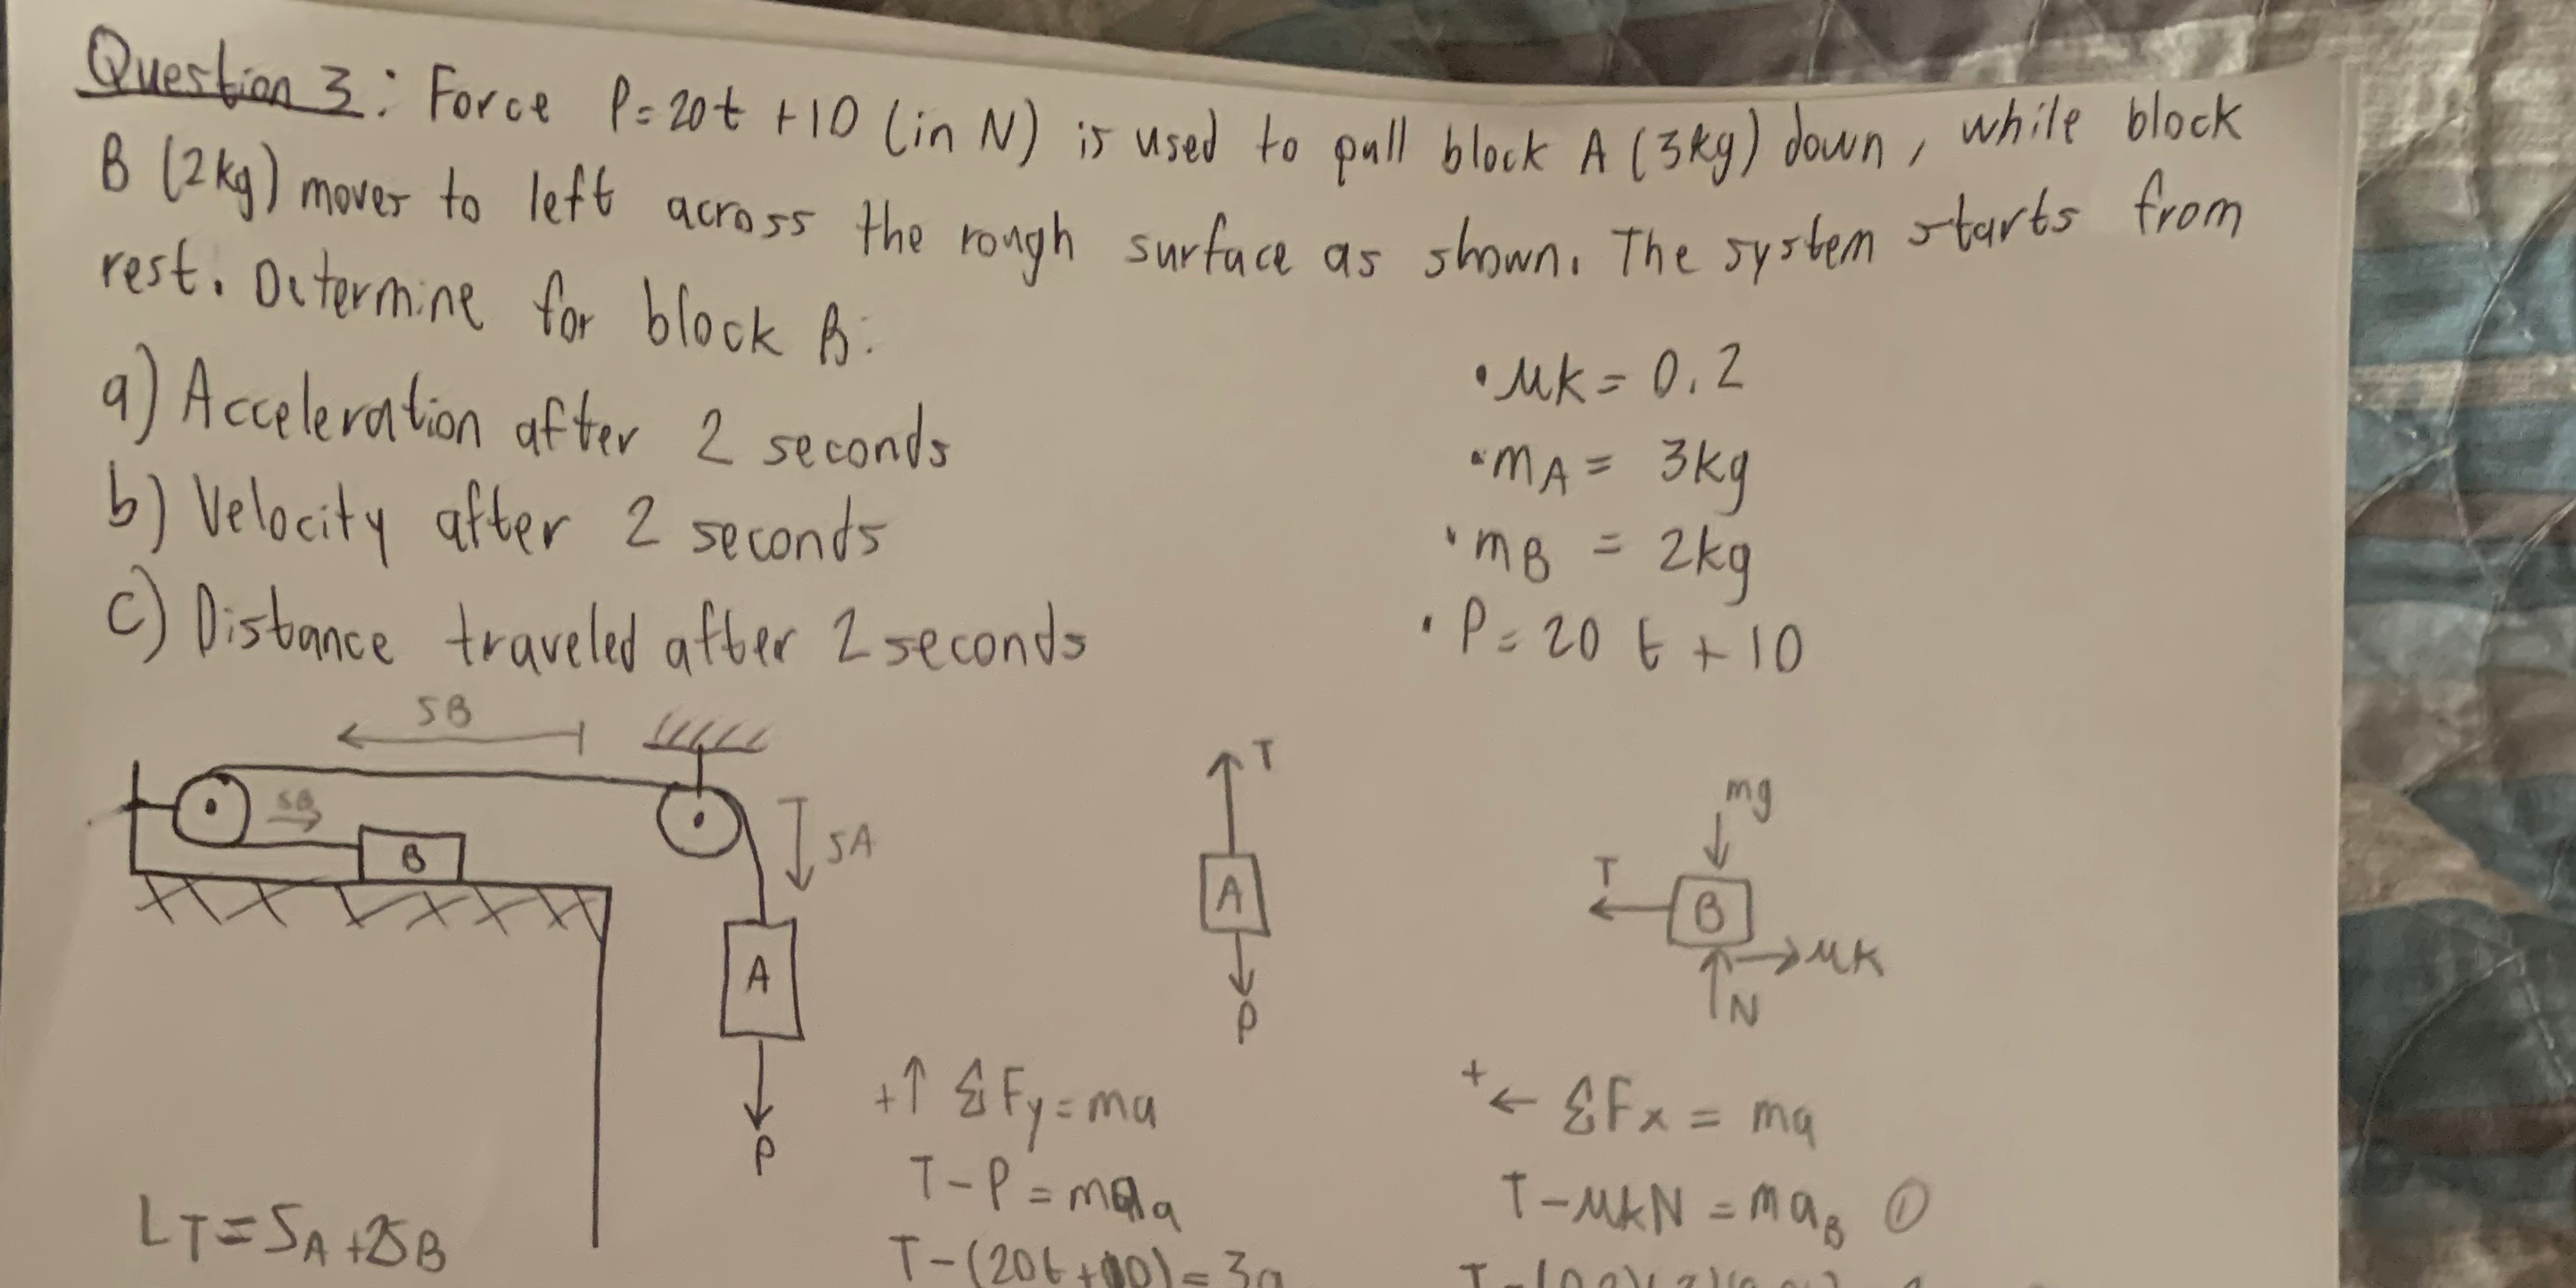 Question 3: Force P=20t +10 (in N) is used to pull block A (3kg) down, while block
B (2kg) moves to left across the rough surface as shown. The system starts from
rest. Determine for block B:
a) Acceleration after 2 seconds
b) Velocity after 2 seconds
c) Distance traveled after 2 seconds
• μk = 0.2
• mA = 3kg
• mB = 2kg
• P = 20 t + 10
SB
SB
SA
B
A
P
LT = SA + 2SB
T
A
P
+↑ ΣFy = ma
T - P = ma
T - (20t + 10) = 3a
mg
T
B
μk
N
+← ΣFx = ma
T - μkN = maB ①